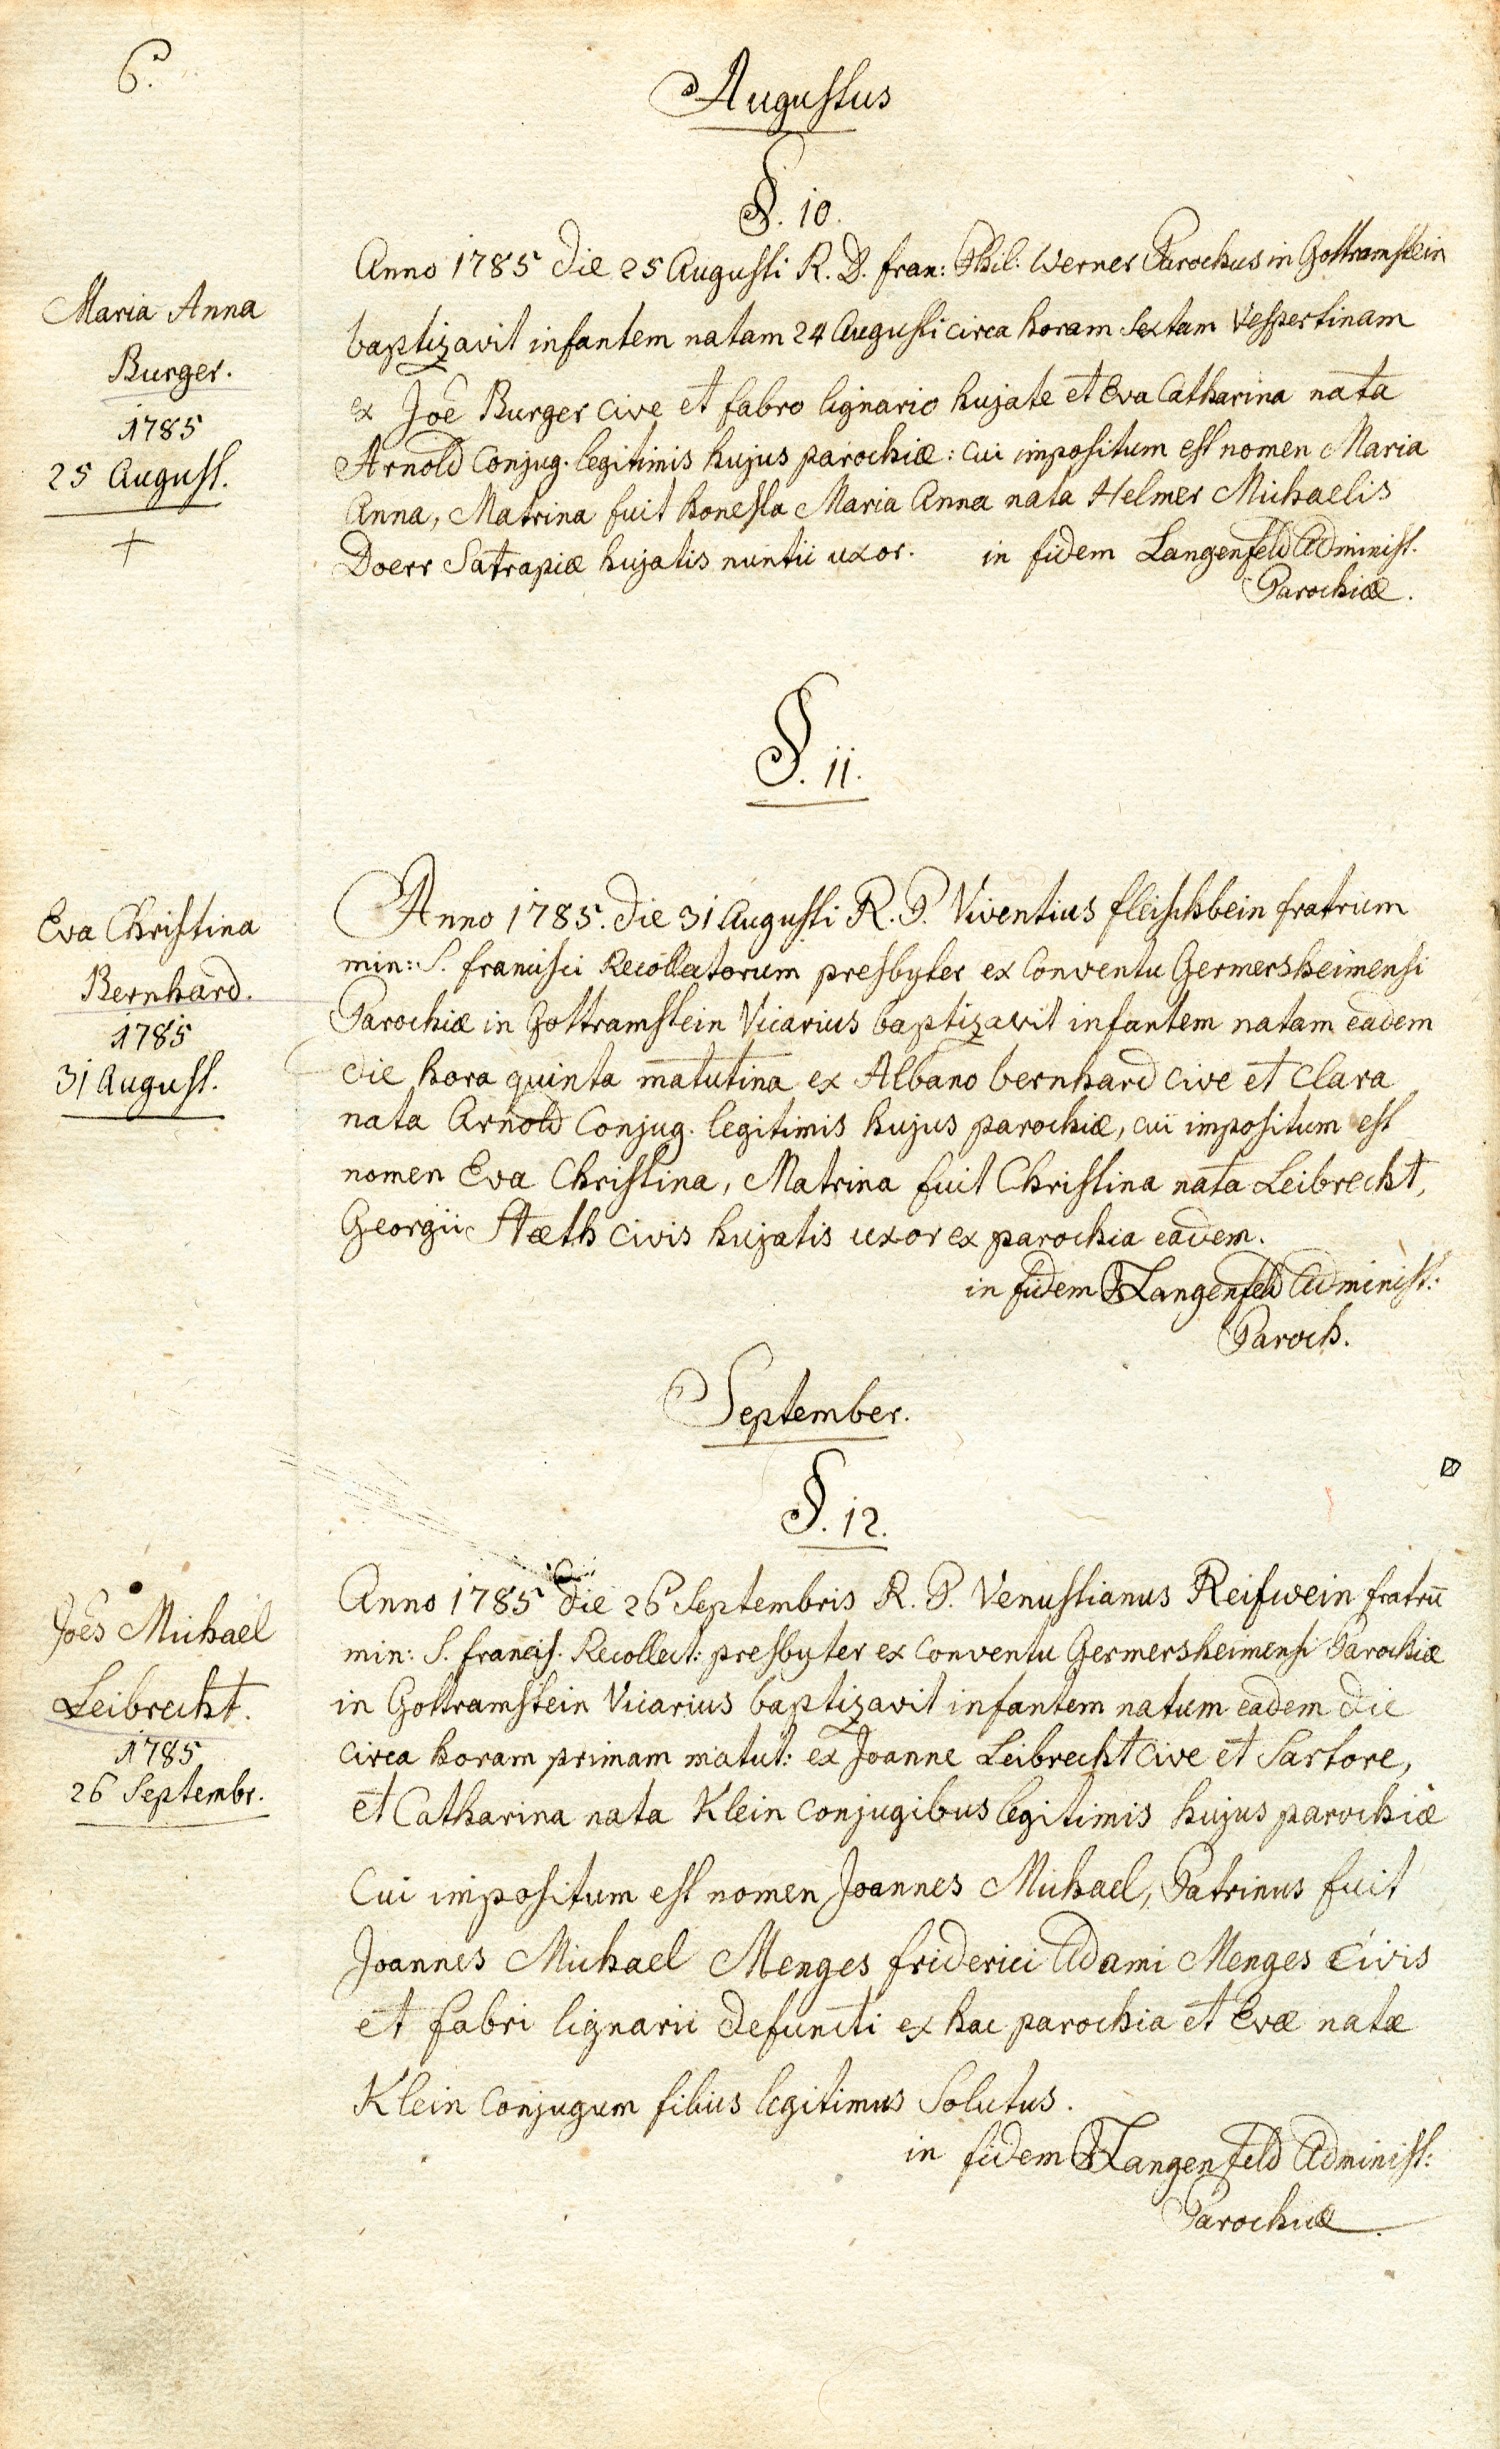 6.
Augustus
§. 10.
Maria Anna
Burger.
1785
25 August.
Anno 1785 die 25 Augusti R. D. fran: Phil. Werner Parochus in Gottramstein
baptizavit infantem natam 24 Augusti circa horam Sextam Vespertinam
ex Joe Burger cive et fabro lignario hujate et Eva Catharina nata
Arnold Conjug. legitimis hujus parochiæ: cui impositum est nomen Maria
Anna, Matrina fuit honesta Maria Anna nata Helmer Michaelis
Doerr Satrapiæ hujatis nuntii uxor. in fidem Langenfeld Administ.
Parochiæ.
§. 11.
Eva Christina
Bernhard.
1785
31 August.
Anno 1785. die 31 Augusti R. P. Viventius fleischbein fratrum
min: S. francisci Recollectorum presbyter ex Conventu Germersheimensi
Parochiæ in Gottramstein Vicarius baptizavit infantem natam eadem
die hora quinta matutina ex Albano bernhard cive et Clara
nata Arnold Conjug. legitimis hujus parochiæ, cui impositum est
nomen Eva Christina, Matrina fuit Christina nata Leibrecht,
Georgii Stæth civis hujatis uxor ex parochia eadem.
in fidem Langenfeld Administ:
Paroch.
September.
§. 12.
Joes Michael
Leibrecht.
1785
26 Septembr.
Anno 1785 die 26 Septembris R. P. Venustianus Reifwein fratrū
min: S. francis. Recollect: presbyter ex Conventu Germersheimensi Parochiæ
in Gottramstein Vicarius baptizavit infantem natum eadem die
circa horam primam matut: ex Joanne Leibrecht cive et Sartore,
et Catharina nata Klein conjugibus legitimis hujus parochiæ
Cui impositum est nomen Joannes Michael, Patrinus fuit
Joannes Michael Menges friderici Adami Menges Civis
et fabri lignarii defuncti ex hac parochia et Evæ natæ
Klein Conjugum filius legitimus Solutus.
in fidem Langenfeld Administ:
Parochiæ